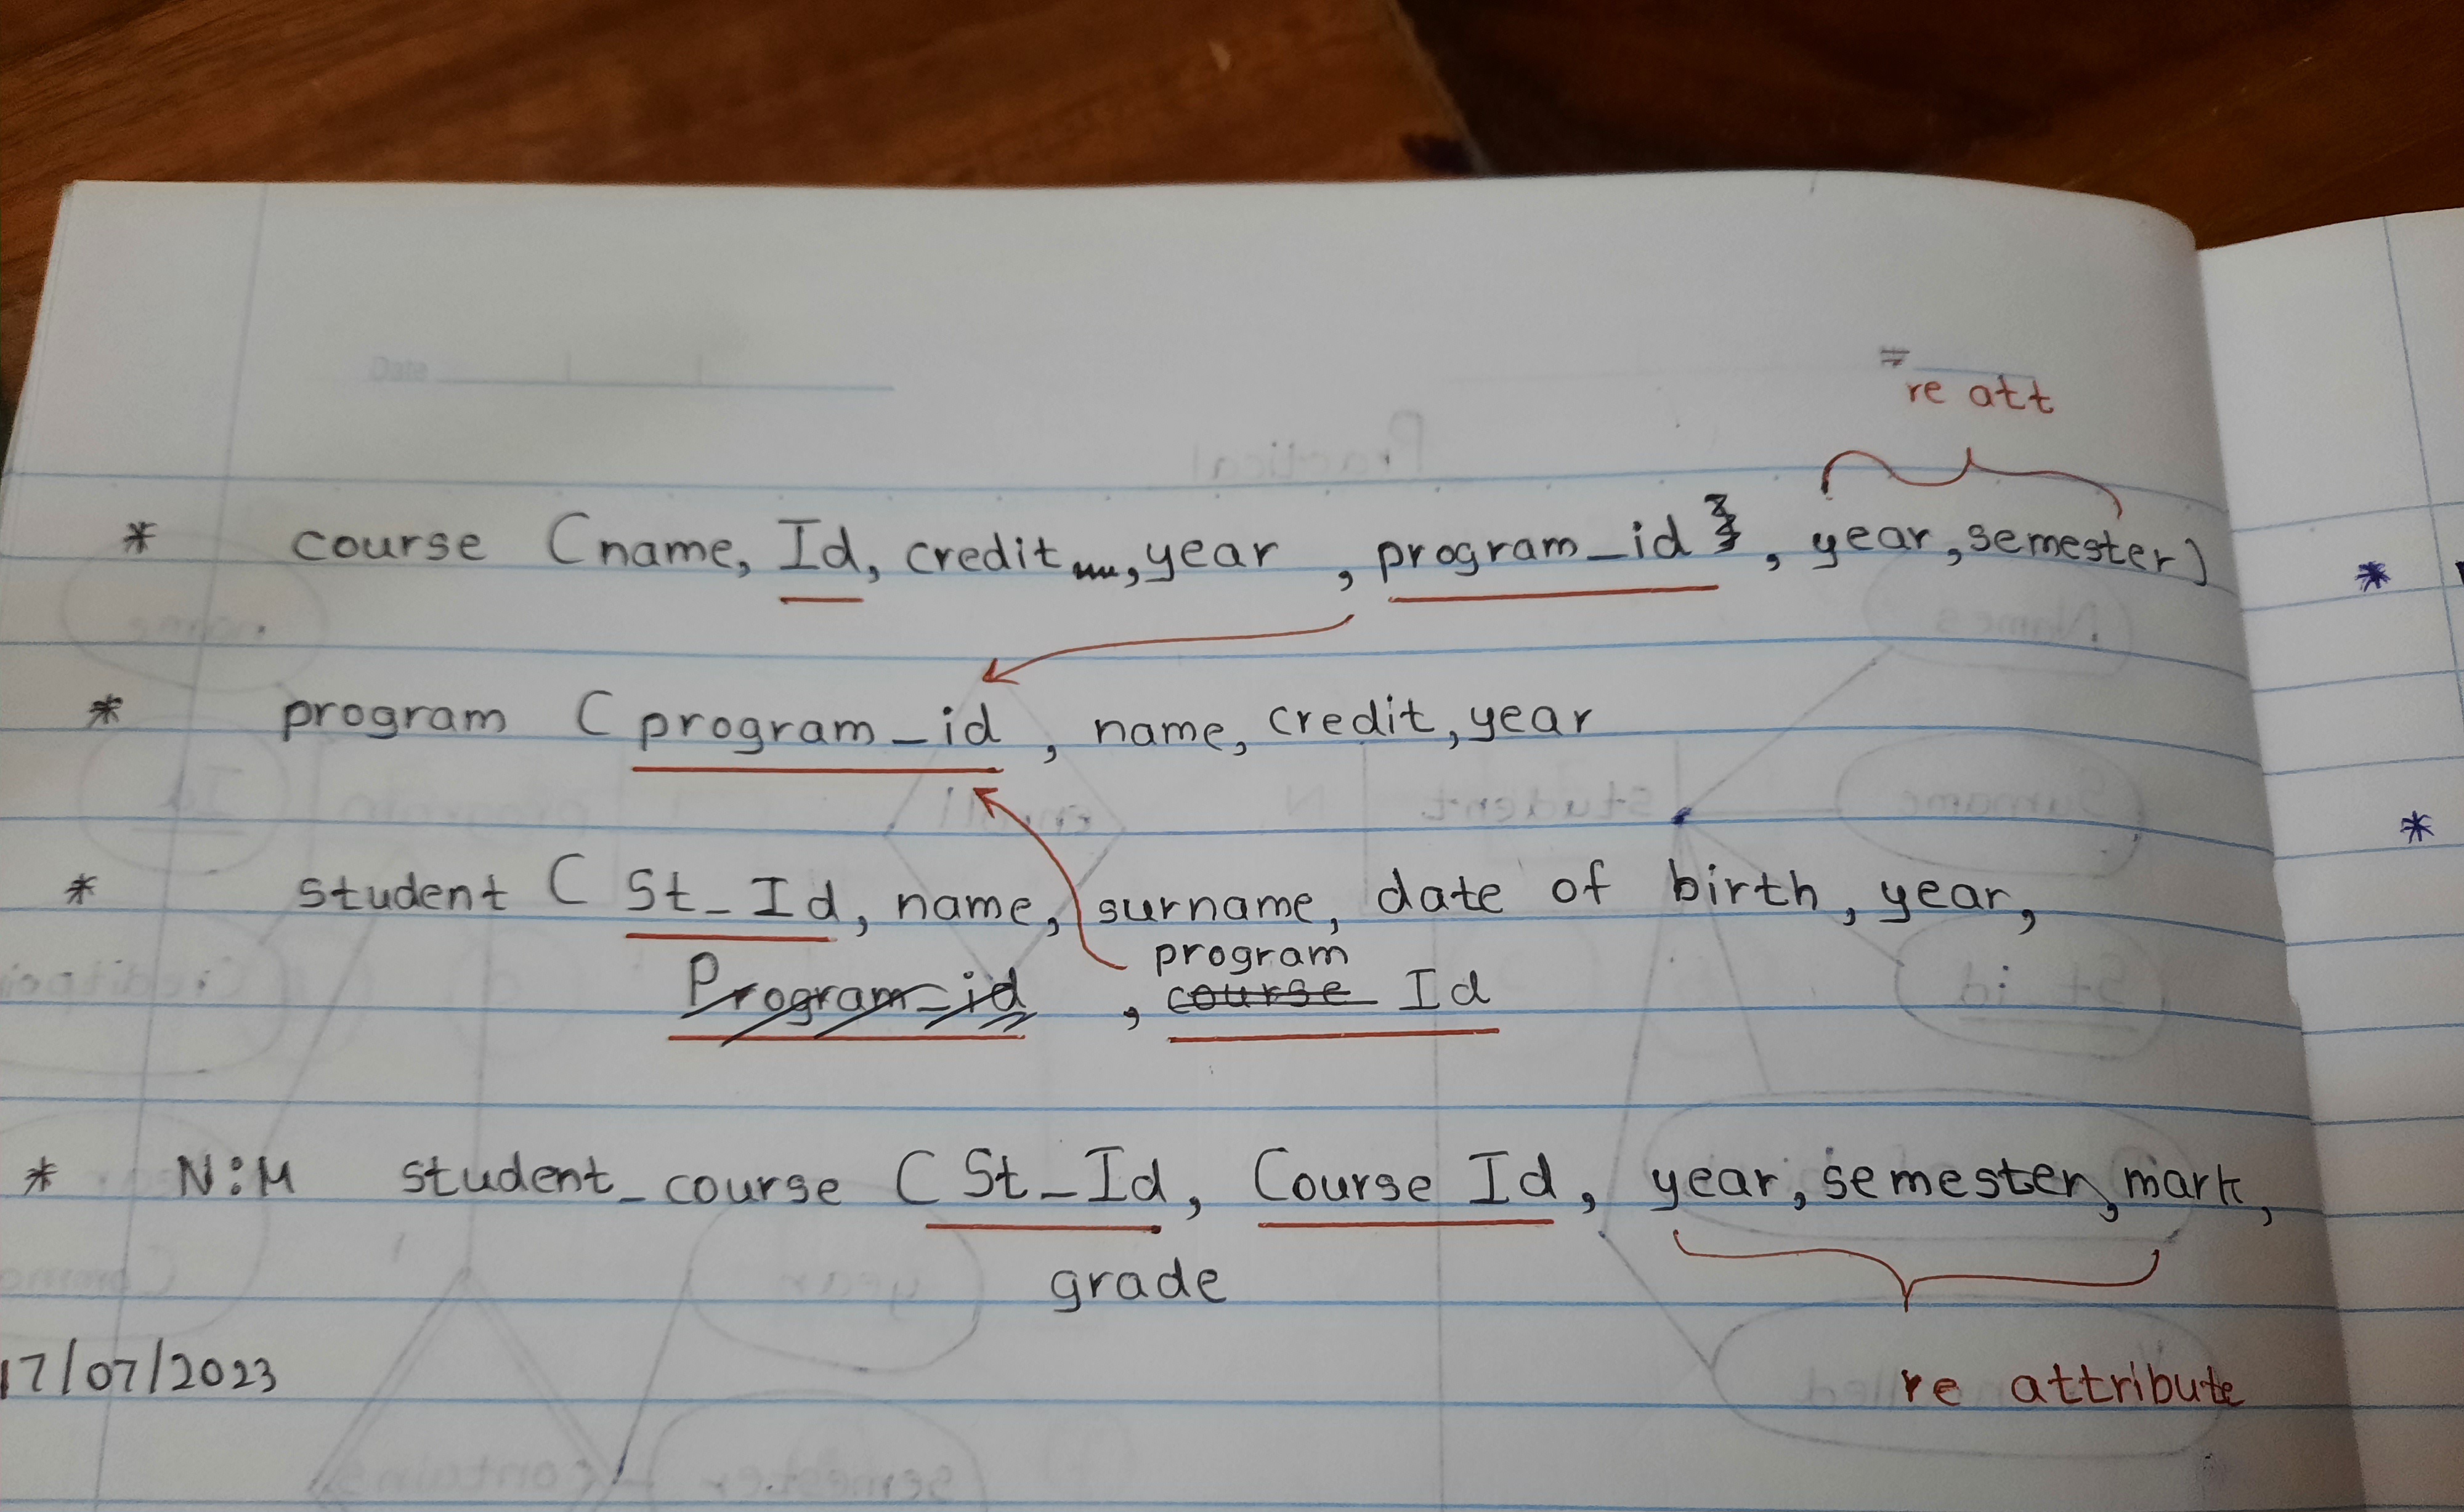 Date
re att
* course (name, Id, credit, year, program_id, year, semester)
* program (program_id, name, credit, year
* student (St_Id, name, surname, date of birth, year,
program
Program_id, course Id
* N:M student_course (St_Id, Course Id, year, semester, mark,
grade
17/07/2023
re attribute